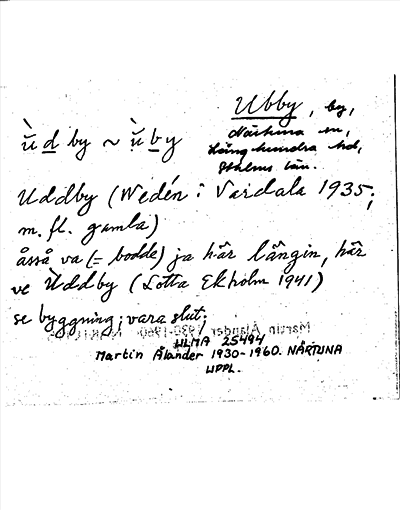 Ubby, by,
Närtuna sn,
Långhundra hd,
Sthlms län.
ù̆d by ~ ù̆by
Uddby (Wedén i Vardala 1935;
m. fl. gamla)
åsså va (= bodde) ja här längin, här
ve Ùddby (Lotta Ekholm 1941)
se byggning; vara slut;
ULMA 25494
Martin Ålander 1930-1960. NÄRTUNA
UPPL.